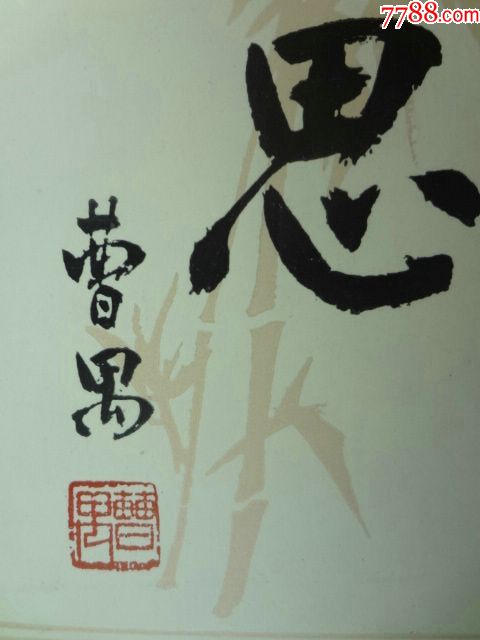 7788.com
思
曹禺
曹禺